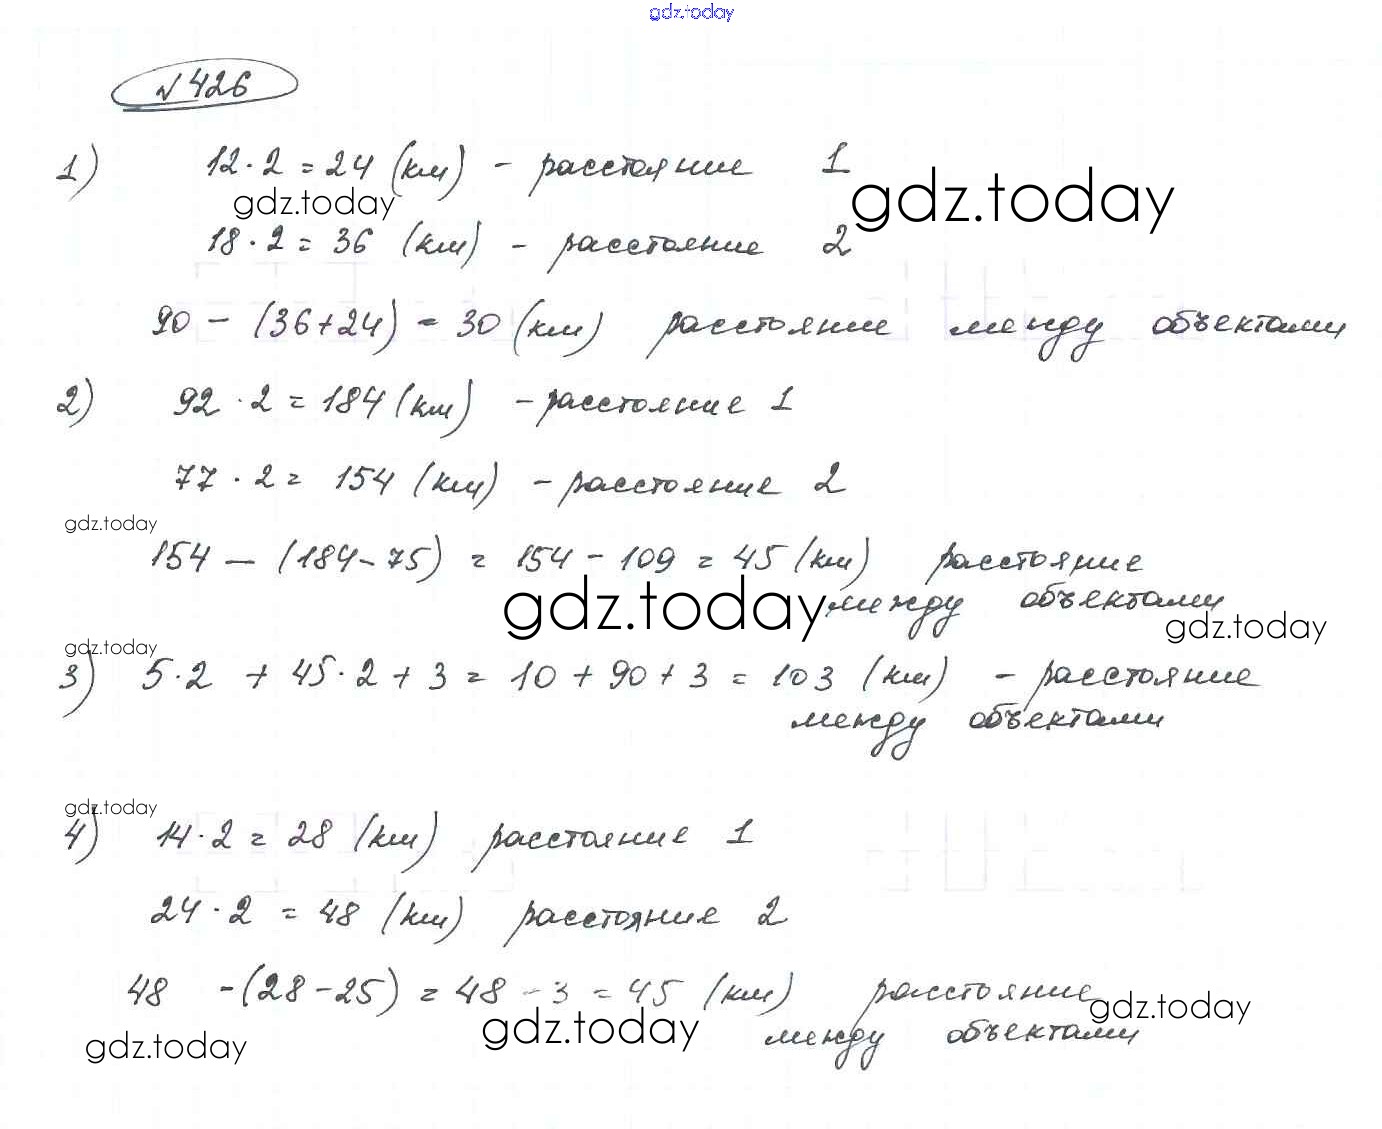 gdz.today
№ 426
1) 12 · 2 = 24 (км) - расстояние 1
gdz.today
gdz.today
18 · 2 = 36 (км) - расстояние 2
90 - (36+24) = 30 (км) расстояние между объектами
2) 92 · 2 = 184 (км) - расстояние 1
77 · 2 = 154 (км) - расстояние 2
gdz.today
154 - (184-75) = 154 - 109 = 45 (км) расстояние
между объектами
gdz.today
gdz.today
gdz.today
3) 5·2 + 45·2 + 3 = 10 + 90 + 3 = 103 (км) - расстояние
между объектами
gdz.today
4) 14 · 2 = 28 (км) расстояние 1
24 · 2 = 48 (км) расстояние 2
48 -(28-25) = 48 - 3 = 45 (км) расстояние
gdz.today
между объектами
gdz.today
gdz.today